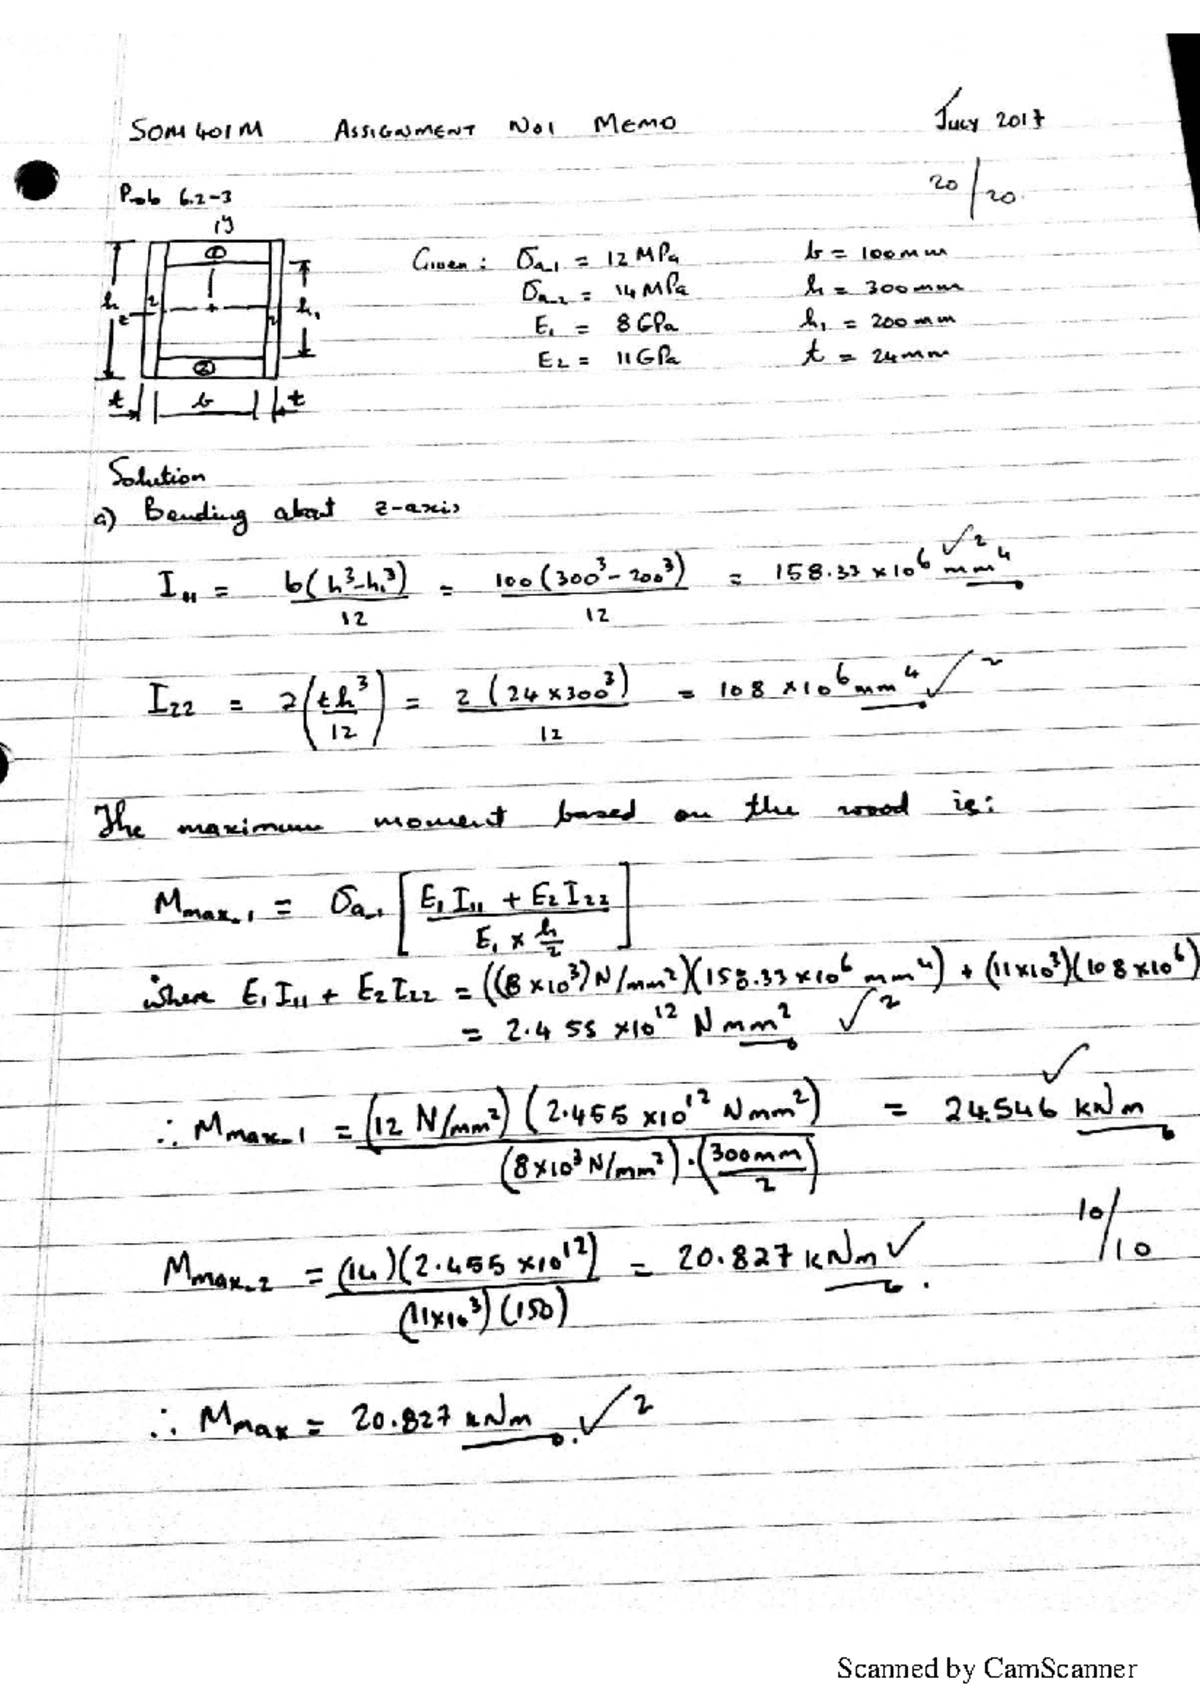 SOM401M ASSIGNMENT No1 MEMO July 2017
20/20
Prob 6.2-3
y
① h z 2 2 h₁ ②
t b t
Given : σa-1 = 12 MPa b = 100mm
σa-2 = 14 MPa h = 300mm
E₁ = 8 GPa h₁ = 200mm
E2 = 11 GPa t = 24mm
Solution
a) Bending about z-axis
I₁₁ = b(h³-h₁³)/12 = 100(300³-200³)/12 = 158.33 x10⁶ mm⁴ ✓2
I22 = 2(th³/12) = 2(24x300³)/12 = 108 x10⁶ mm⁴ ✓2
The maximum moment based on the wood is:
Mmax-1 = σa-1 [E₁I₁₁ + E2I22 / E₁ x h/2]
where E₁I₁₁ + E2I22 = ((8x10³)N/mm²)(158.33x10⁶ mm⁴) + (11x10³)(108x10⁶)
= 2.455 x10¹² Nmm² ✓2
∴ Mmax-1 = (12 N/mm²)(2.455 x10¹² Nmm²) / (8x10³N/mm²).(300mm/2) = 24.546 kNm ✓
Mmax-2 = (14)(2.455 x10¹²) / (11x10³)(150) = 20.827 kNm ✓. 10/10
∴ Mmax = 20.827 kNm. ✓2
Scanned by CamScanner